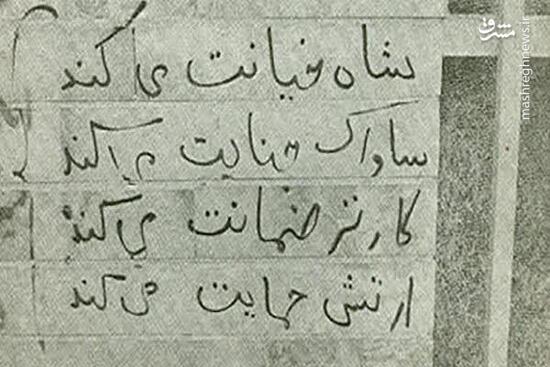 شاه خیانت می کند
ساواک جنایت می کند
کارتر ضمانت می کند
ارتش حمایت می کند
مشرق
mashreghnews.ir